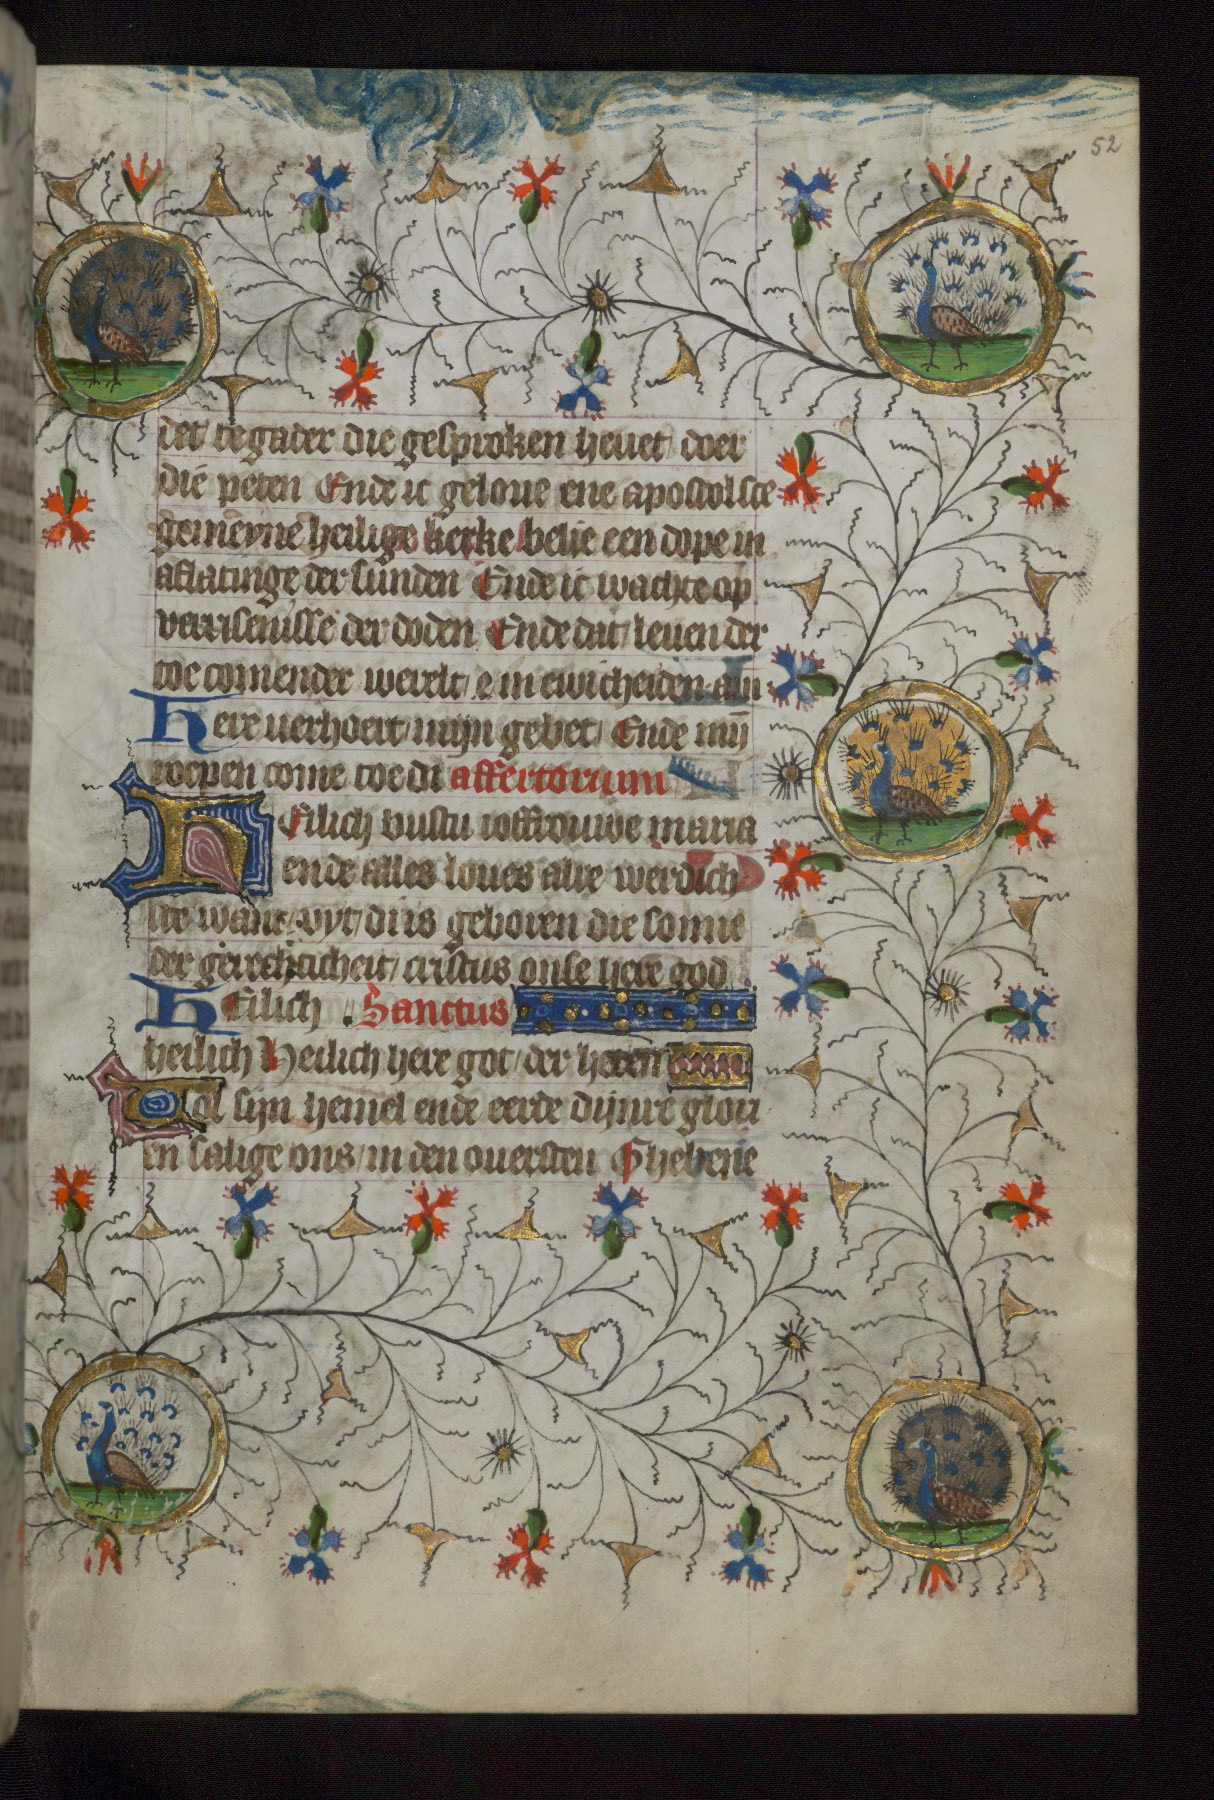 52
det te gader die gesproken heuet doer
die peten Ende ic geloue ene apostolsce
gemeyne heilige kerke belie een dope in
aflatinge der sunden Ende ic wachte op
verrisenisse der doden Ende dat leuen der
toe comender werelt e in ewicheiden am
Here verhoert mijn gebet Ende mijn
roepen come toe di affertorum
Eilich bustu ioffrouwe maria
ende alles loues alre werdich
ste want vyt di is geboren die sonne
der gerechticheit cristus onse here god
HEilich Sanctus
heilich Heilich here got der heren
Uol sijn hemel ende eerde dijnre glori
en salige ons in den ouersten Ghebene